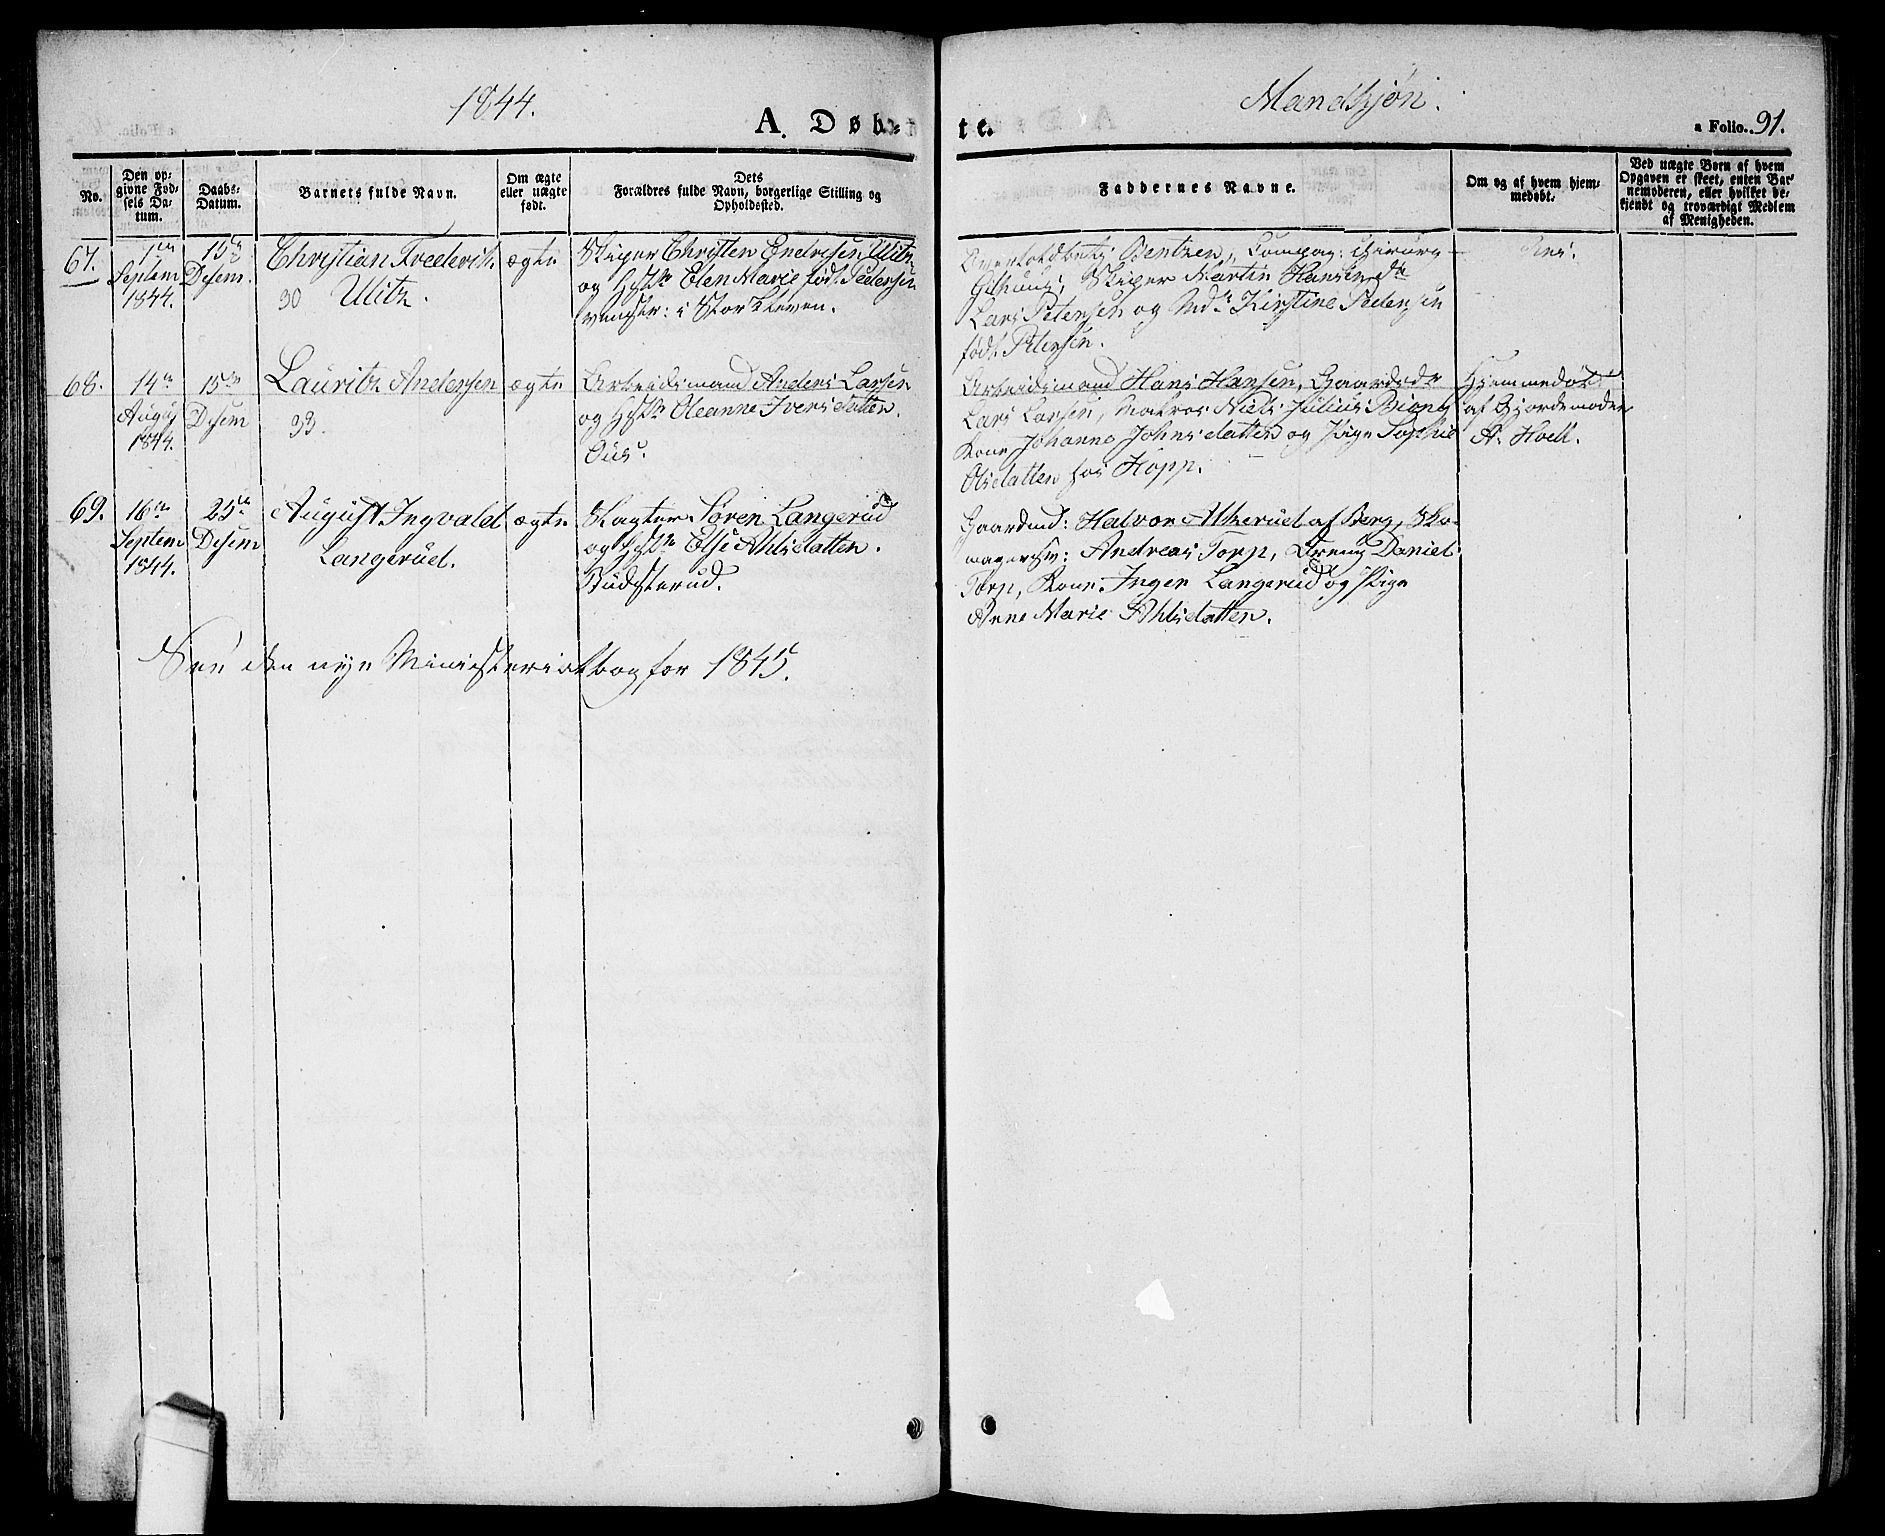 1844.
Mandkjøn.
A. Døb-
te.
a Folio. 91.
No.
Den op-
givne Fød-
sels Da-
tum.
Daabs-
Datum.
Barnets fulde Navn.
Om ægte
eller uægte
født.
Dets
Forældres fulde Navn, borgerlige Stilling og
Opholdssted.
Faddernes Navne.
Om og af hvem hjem-
medøbt.
Ved uægte Børn af hvem
Opgaven er skeet, enten Bar-
nemoderen, eller hvilket be-
kjendt og troværdigt Medlem
af Menigheden.
67.
1ste
Septem
1844.
15de
Desem.
Christian Frederik
30 Ulitz.
ægte
Skiper Christen Endresen Ulitz
og Hst. Elen Marie født Pedersen
i Stor Kleven.
Bentzen, Compag: Chirurg
Skiper Martin Hansen, do
Lars Petersen og Md. Kirstine Pedersen
født Petersen.
68.
14de
August
1844.
15de
Desem
Lauritz Andersen
33.
ægte
Arbeidsmand Anders Larsen
og Hst. Oleanne Iversdatten.
Arbeidsmand Hans Hansen, Gaardsd.
Lars Larsen, Matros Niels Julius
Kone Johanne Johnsdatten og Pige Sophie
Olsdatten hos Hopp.
Hjemmedøbt
af Gjordemoder
A. Holt.
69.
16de
Septem
1844.
25de
Desem
August Ingvald
Langerud.
ægte
Slagter Søren Langerud
og Hst. Else Ahlsdatten.
Budsterud.
Gaardmd: Halvor Askerud af Berg, Sko-
magersv: Andreas Torp, Dreng Daniel
Torp, Kone Inger Langerud og Pige
Anne Marie Ahlsdatten.
See den nye Ministerialbog for 1845.